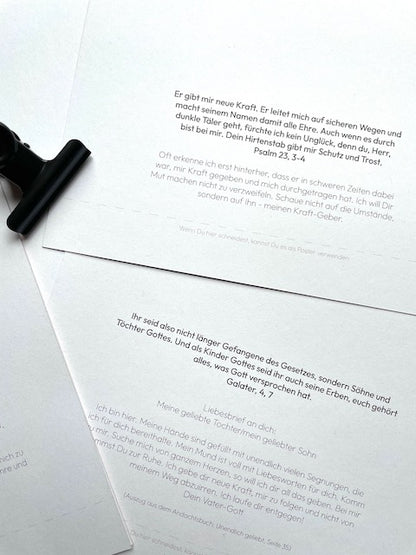 Er gibt mir neue Kraft. Er leitet mich auf sicheren Wegen und
macht seinem Namen damit alle Ehre. Auch wenn es durch
dunkle Täler geht, fürchte ich kein Unglück, denn du, Herr,
bist bei mir. Dein Hirtenstab gibt mir Schutz und Trost.
Psalm 23, 3-4
Oft erkenne ich erst hinterher, dass er in schweren Zeiten dabei
war, mir Kraft gegeben und mich durchgetragen hat. Ich will Dir
Mut machen nicht zu verzweifeln. Schaue nicht auf die Umstände,
sondern auf ihn - meinen Kraft-Geber.
Wenn Du hier schneidest, kannst Du es als Poster verwenden
Ihr seid also nicht länger Gefangene des Gesetzes, sondern Söhne und
Töchter Gottes. Und als Kinder Gottes seid ihr auch seine Erben, euch gehört
alles, was Gott versprochen hat.
Galater, 4, 7
Liebesbrief an dich:
Meine geliebte Tochter/mein geliebter Sohn
ich bin hier. Meine Hände sind gefüllt mit unendlich vielen Segnungen, die
ich für dich bereithalte. Mein Mund ist voll mit Liebesworten für dich. Komm
zu mir. Suche mich von ganzem Herzen, so will ich dir all das geben. Bei mir
kommst Du zur Ruhe. Ich gebe dir neue Kraft, mir zu folgen und nicht von
meinem Weg abzuirren. Ich laufe dir entgegen!
Dein Vater-Gott
(Auszug aus dem Andachtsbuch: Unendlich geliebt, Seite 35)
hier schneidest, kannst
ich zu
re und